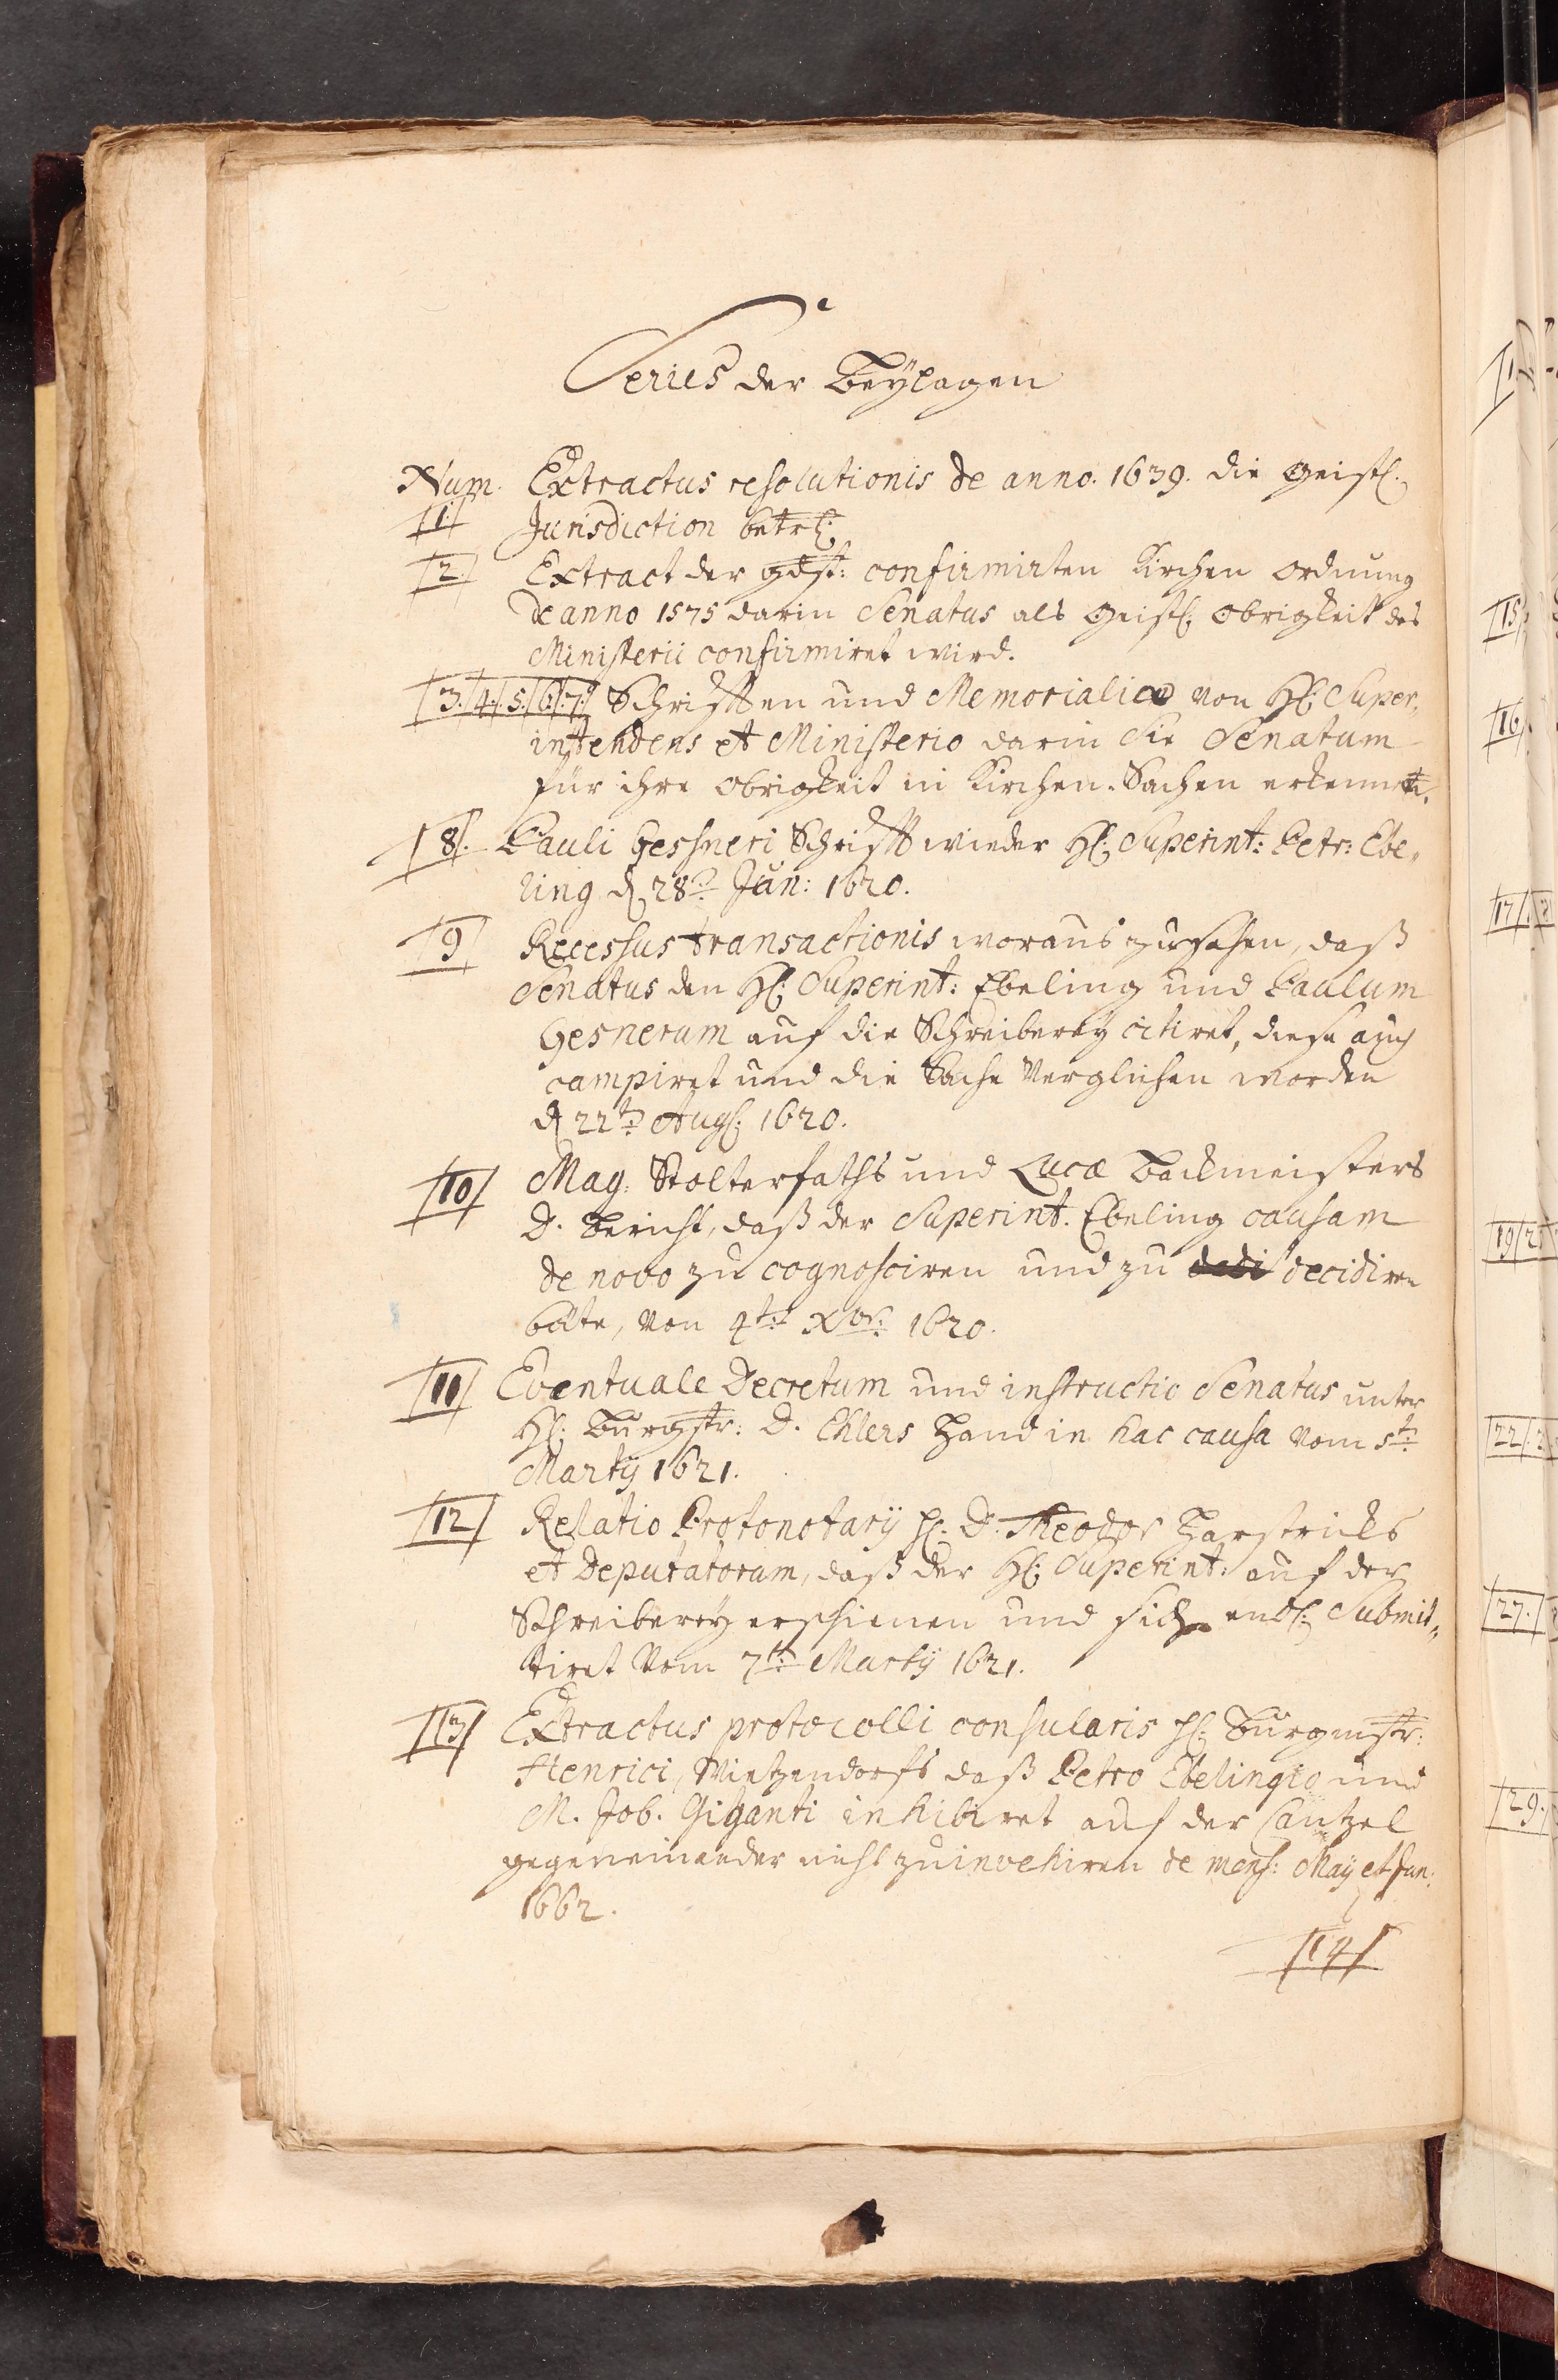 Series der Beÿlagen
Num. Extractus resolutionis de anno. 1639. die Geistl.
1. Jurisdiction betrl:
2. Extract der gdst: confirmirten Kirchen Ordnung
de anno 1575 darin Senatus als Geistl: Obrigkeit des
Ministerii confirmiret wird.
3. 4. 5. 6. 7. Schrifften und Memorialia von H: Super„
intendens et Ministerio darin Sie Senatum
für ihre Obrigkeit in Kirchen-Sachen erkennet.
8. Pauli Gesneri Schrifft wieder H: Superint: Petr: Ebe„
ling d 28 Jun: 1620.
9 Recessus transactionis woraus zusehen, daß
Senatus den H: Superint: Ebeling und Paulum
Gesnerum auf die Schreiberey citiret, diese auch
campiret und die Sache verglichen worden
d 22t. Aug: 1620.
10 Mag: Stolterfohts und Lucæ Backmeisters
D. Bericht, daß der Superint. Ebeling causam
de novo zu cognosciren und zu decidiren
bäte, von 4t. Xbr: 1620.
11 Eventuale Decretum und instructio Senatus unter
H: Burgstr: D. Ehlers Hand in hac causa vom 5t.
Martÿ 1621.
12 Relatio Protonotarÿ H: D. Theodor Harstricks
et Deputatorum, daß der H: Superint: auf der
Schreiberey erschienen und sich endl: Submit„
tiret vom 7t. Martÿ 1621.
13 Extractus protocolli consularis H: Burgmstr:
Henrici Wietzendorffs daß Petro Ebelingio und
M. Job. Giganti inhibiret auf der Cantzel
gegeneinander nicht zu invehiren de mens: Maÿ et Jun:
1662.
14